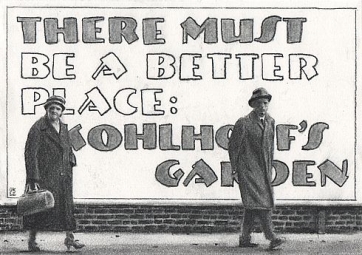 THERE MUST
BE A BETTER
PLACE:
KOHLHOFF'S
GARDEN